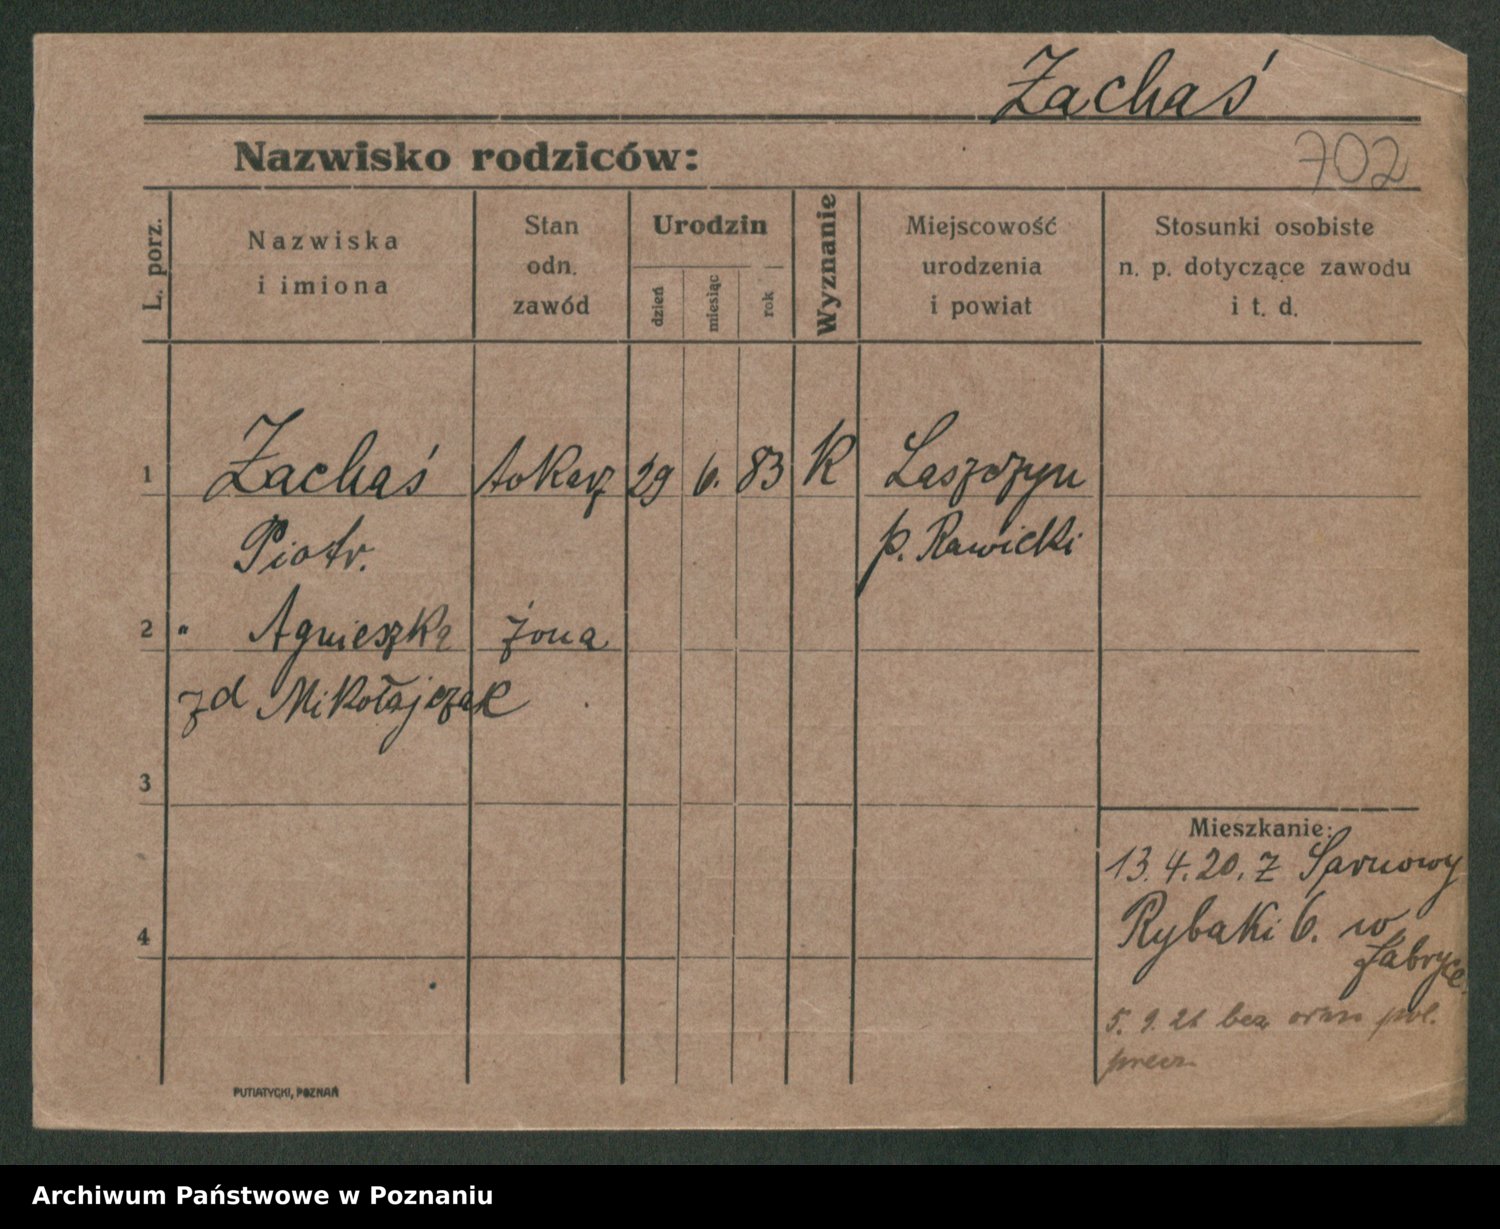 Zachaś
Nazwisko rodziców:
702
L. porz.
Nazwiska
i imiona
Stan
odn.
zawód
Urodzin
dzień
miesiąc
rok
Wyznanie
Miejscowość
urodzenia
i powiat
Stosunki osobiste
n. p. dotyczące zawodu
i t. d.
1 Zachaś tokarz 29 6. 83 K Laszczyn
Piotr. p. Rawicki
2 " Agnieszka żona
zd Mikołajczak
3
Mieszkanie:
13.4.20. z Sarnowy
Rybaki 6. w
fabryce.
4
5. 9. 21 bez pol.
PUTIATYCKI, POZNAŃ
Archiwum Państwowe w Poznaniu